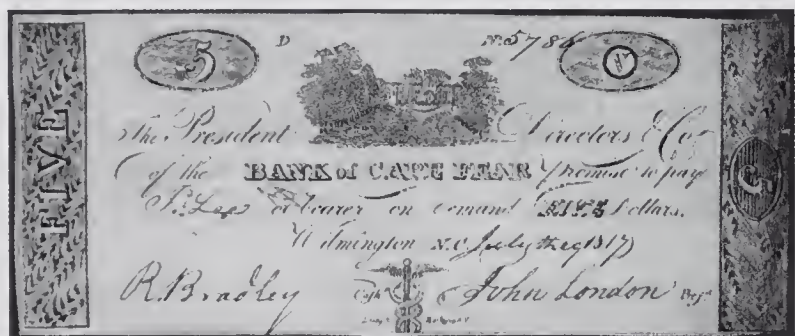 FIVE
5 D No. 5786 V
The President Directors & Co.
of the BANK of CAPE FEAR promise to pay
or bearer on demand FIVE Dollars.
Wilmington N.C. July 1817
R. Bradley Cash. John London Pres.
5